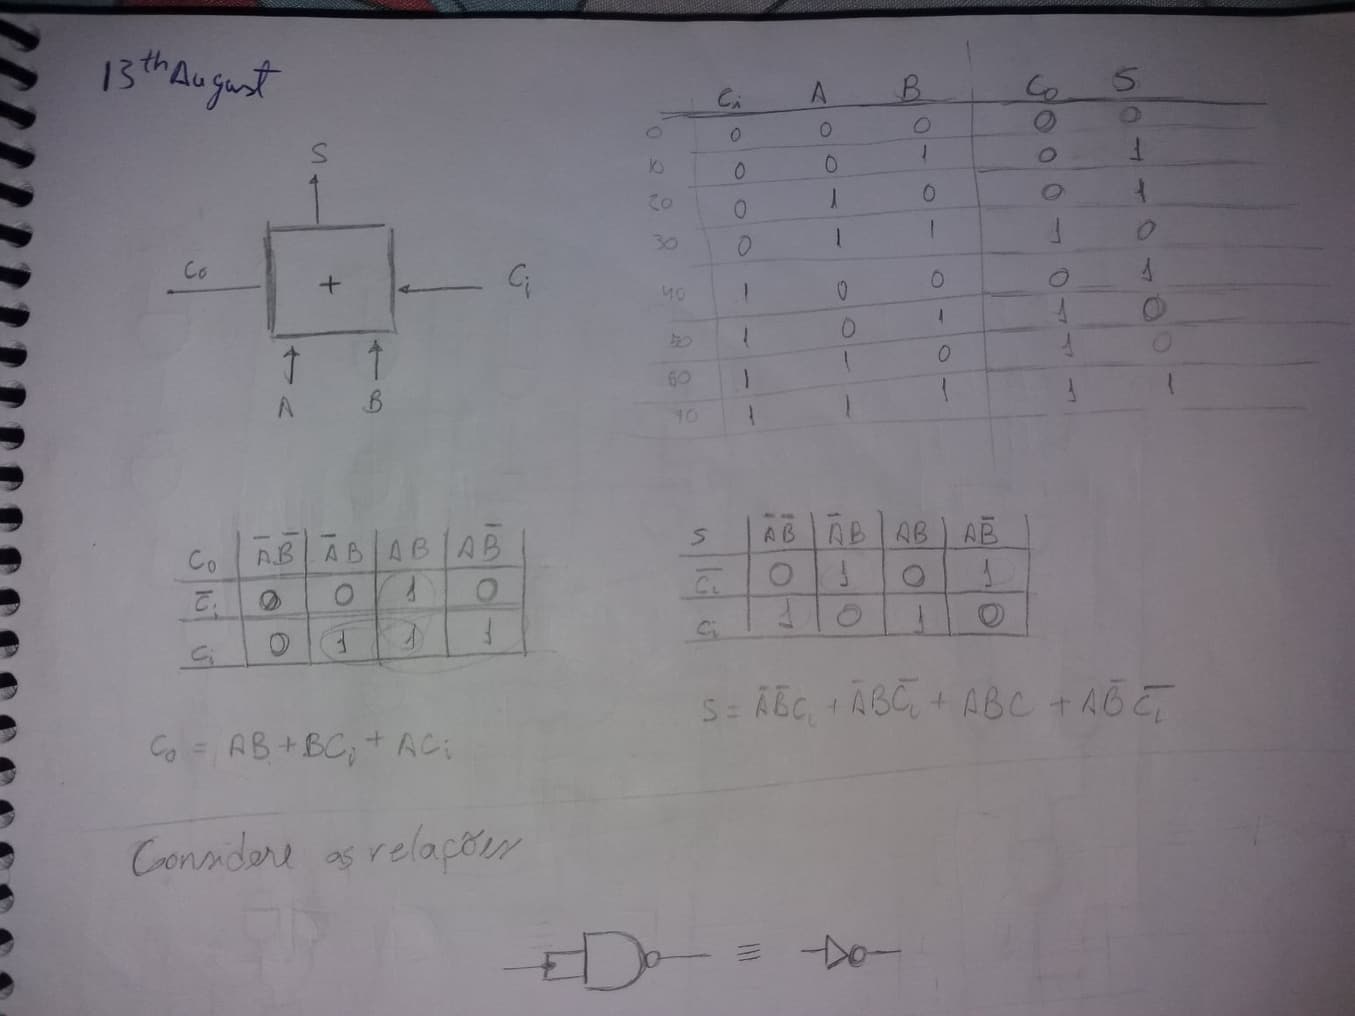 13th August
S
Co + Ci
A B
Ci A B Co S
0 0 0 0 0 0
10 0 0 1 0 1
20 0 1 0 0 1
30 0 1 1 1 0
40 1 0 0 0 1
50 1 0 1 1 0
60 1 1 0 1 0
70 1 1 1 1 1
Co A̅B̅ A̅B AB AB̅
C̅i 0 0 1 0
Ci 0 1 1 1
Co = AB + BCi + ACi
S A̅B̅ A̅B AB AB̅
C̅i 0 1 0 1
Ci 1 0 1 0
S = A̅B̅Ci + A̅BC̅i + ABC + AB̅C̅i
Considere as relações
≡